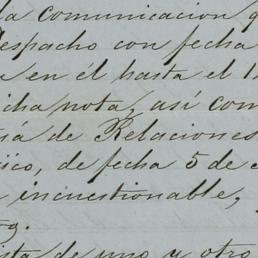 la comunicacion q
espacho con fecha
en él hasta el 1
icha nota, así com
ría de Relaciones
jico, de fecha 5 de
incuestionable, y
sta de uno u otro